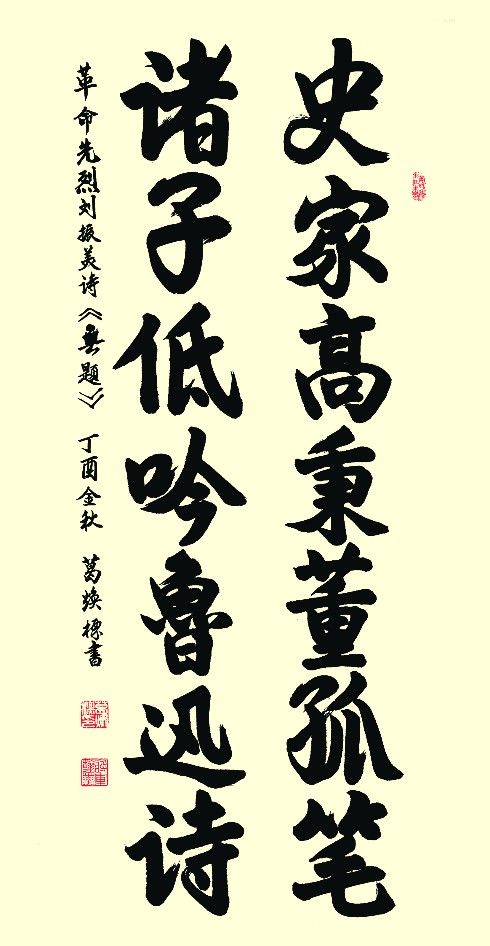 史家高秉董孤笔
诸子低吟鲁迅诗
革命先烈刘振美诗《無题》 丁酉金秋 葛焕标書